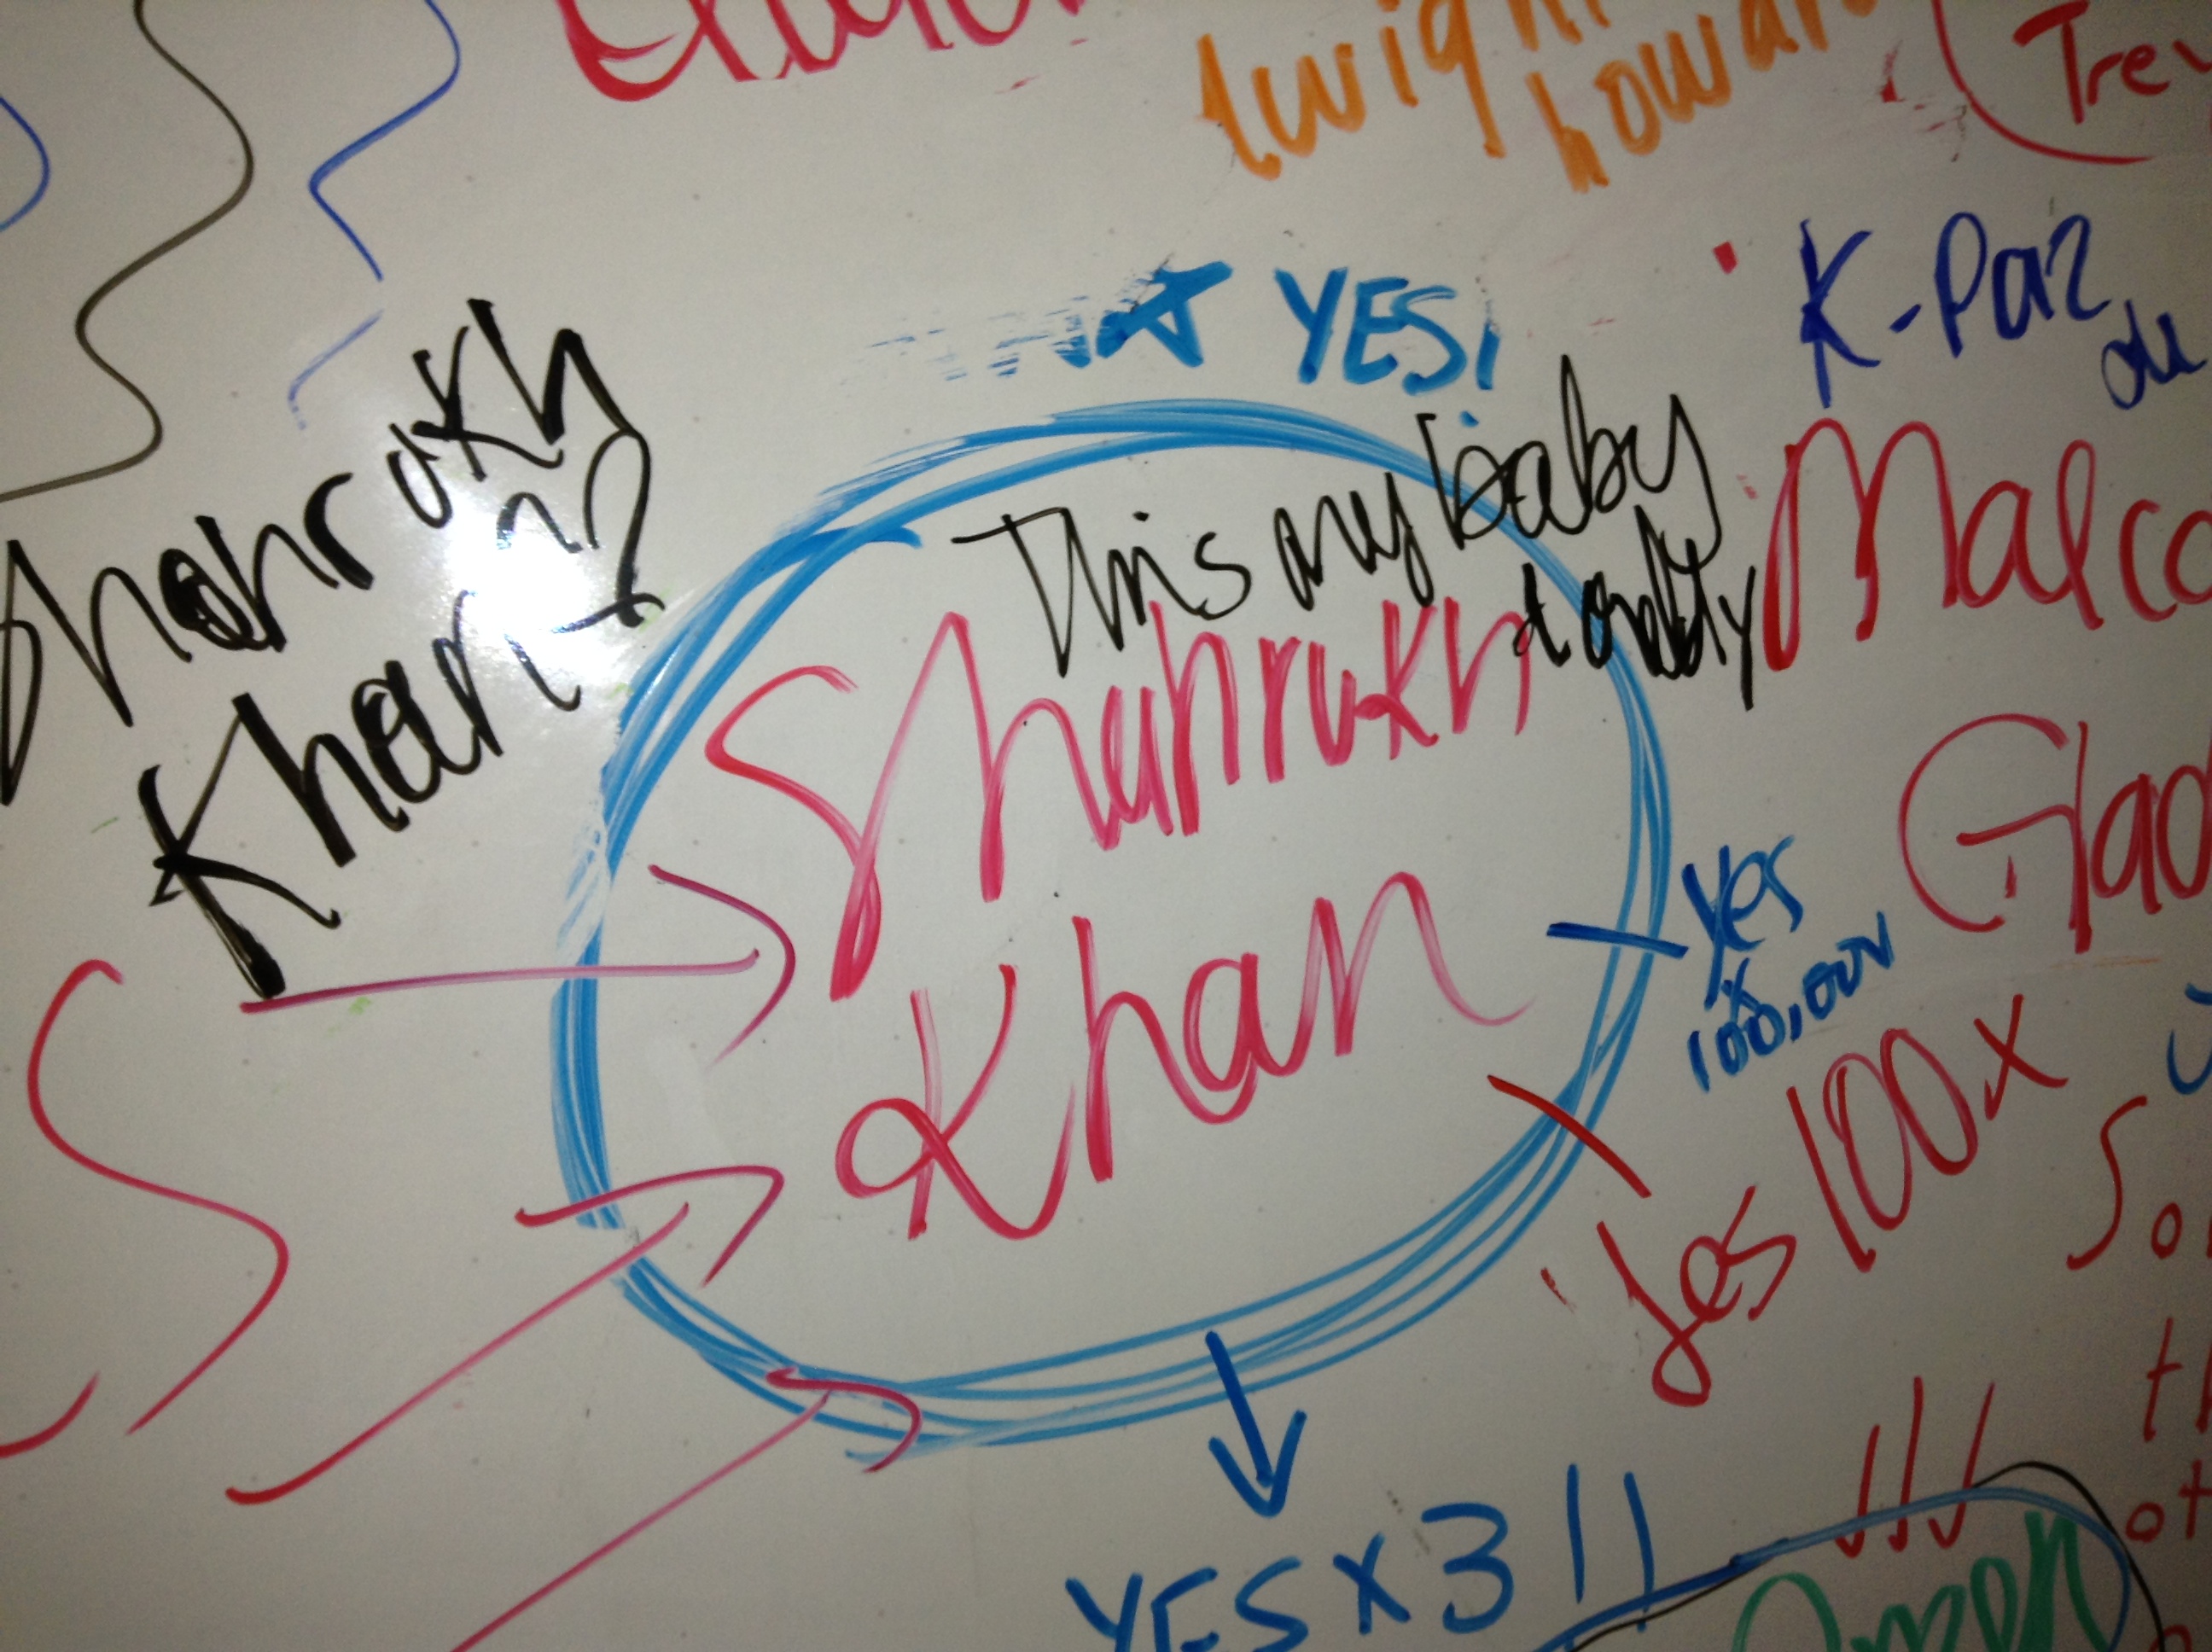 twight
howar
Trev
YES!
K-Paz
de
Shahrukh
Khan
This my baby
Malco
Shahrukh
Khan
Glad
Yes
x
100,000
Yes 100x
YES x 3 !!